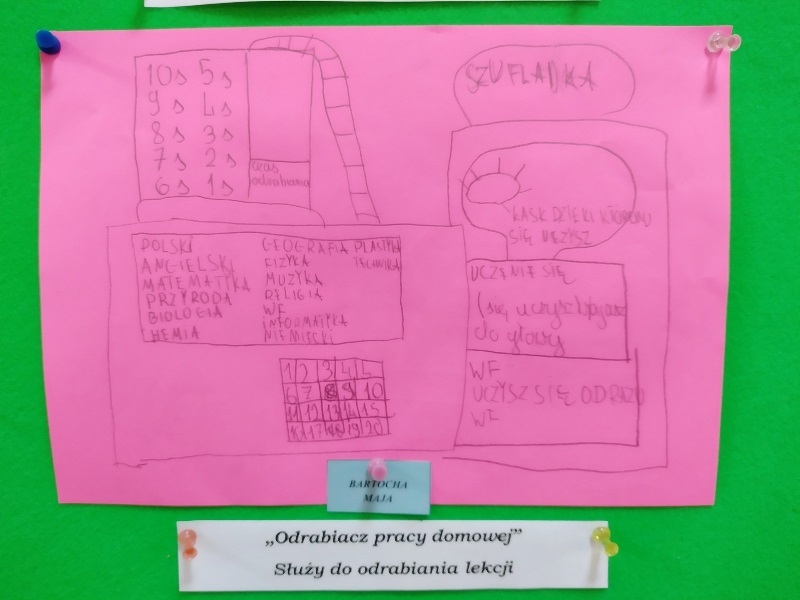 10s 5s
9s 4s
8s 3s
7s 2s
6s 1s
czas
odrabiania
SZUFLADKA
KASK DZIĘKI KTÓREMU
SIĘ UCZYSZ
POLSKI GEOGRAFIA PLASTYKA
ANGIELSKI FIZYKA TECHNIKA
MATEMATYKA MUZYKA
PRZYRODA RELIGIA
BIOLOGIA WF
HEMIA INFORMATYKA
NIEMIECKI
UCZENIE SIĘ
(się uczysz
do głowy
WF
UCZYSZ SIĘ ODRAZU
WF
1 2 3 4 4
6 7 8 9 10
11 12 13 14 15
16 17 18 19 20
BARTOCHA
MAJA
„Odrabiacz pracy domowej”
Służy do odrabiania lekcji